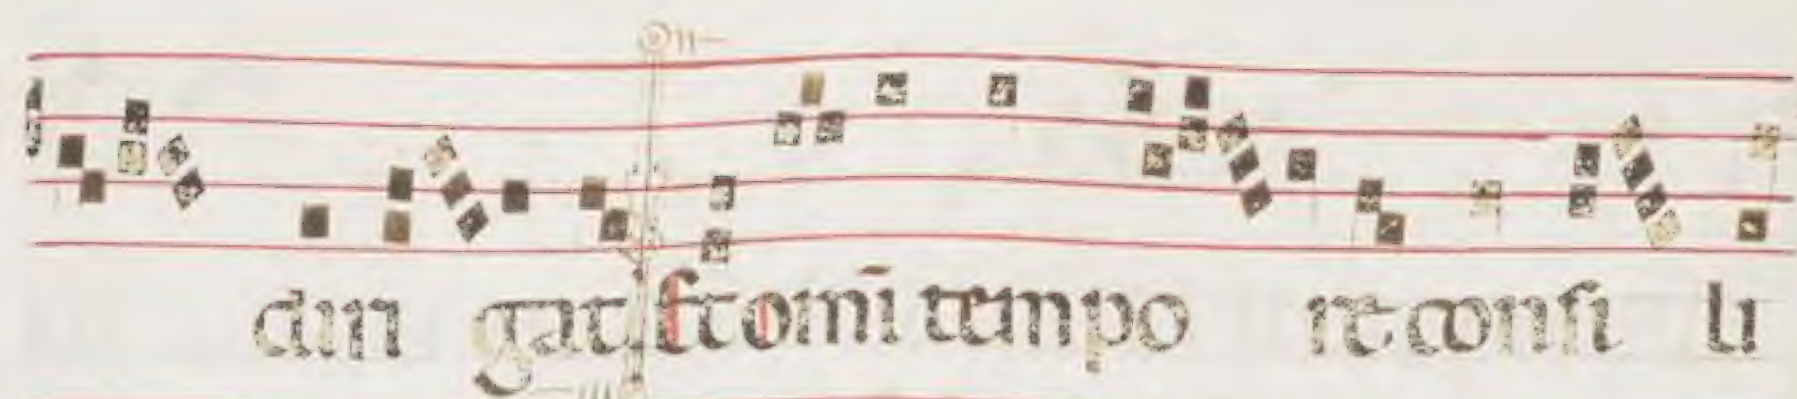 cun gat Et omī tempo re consi li